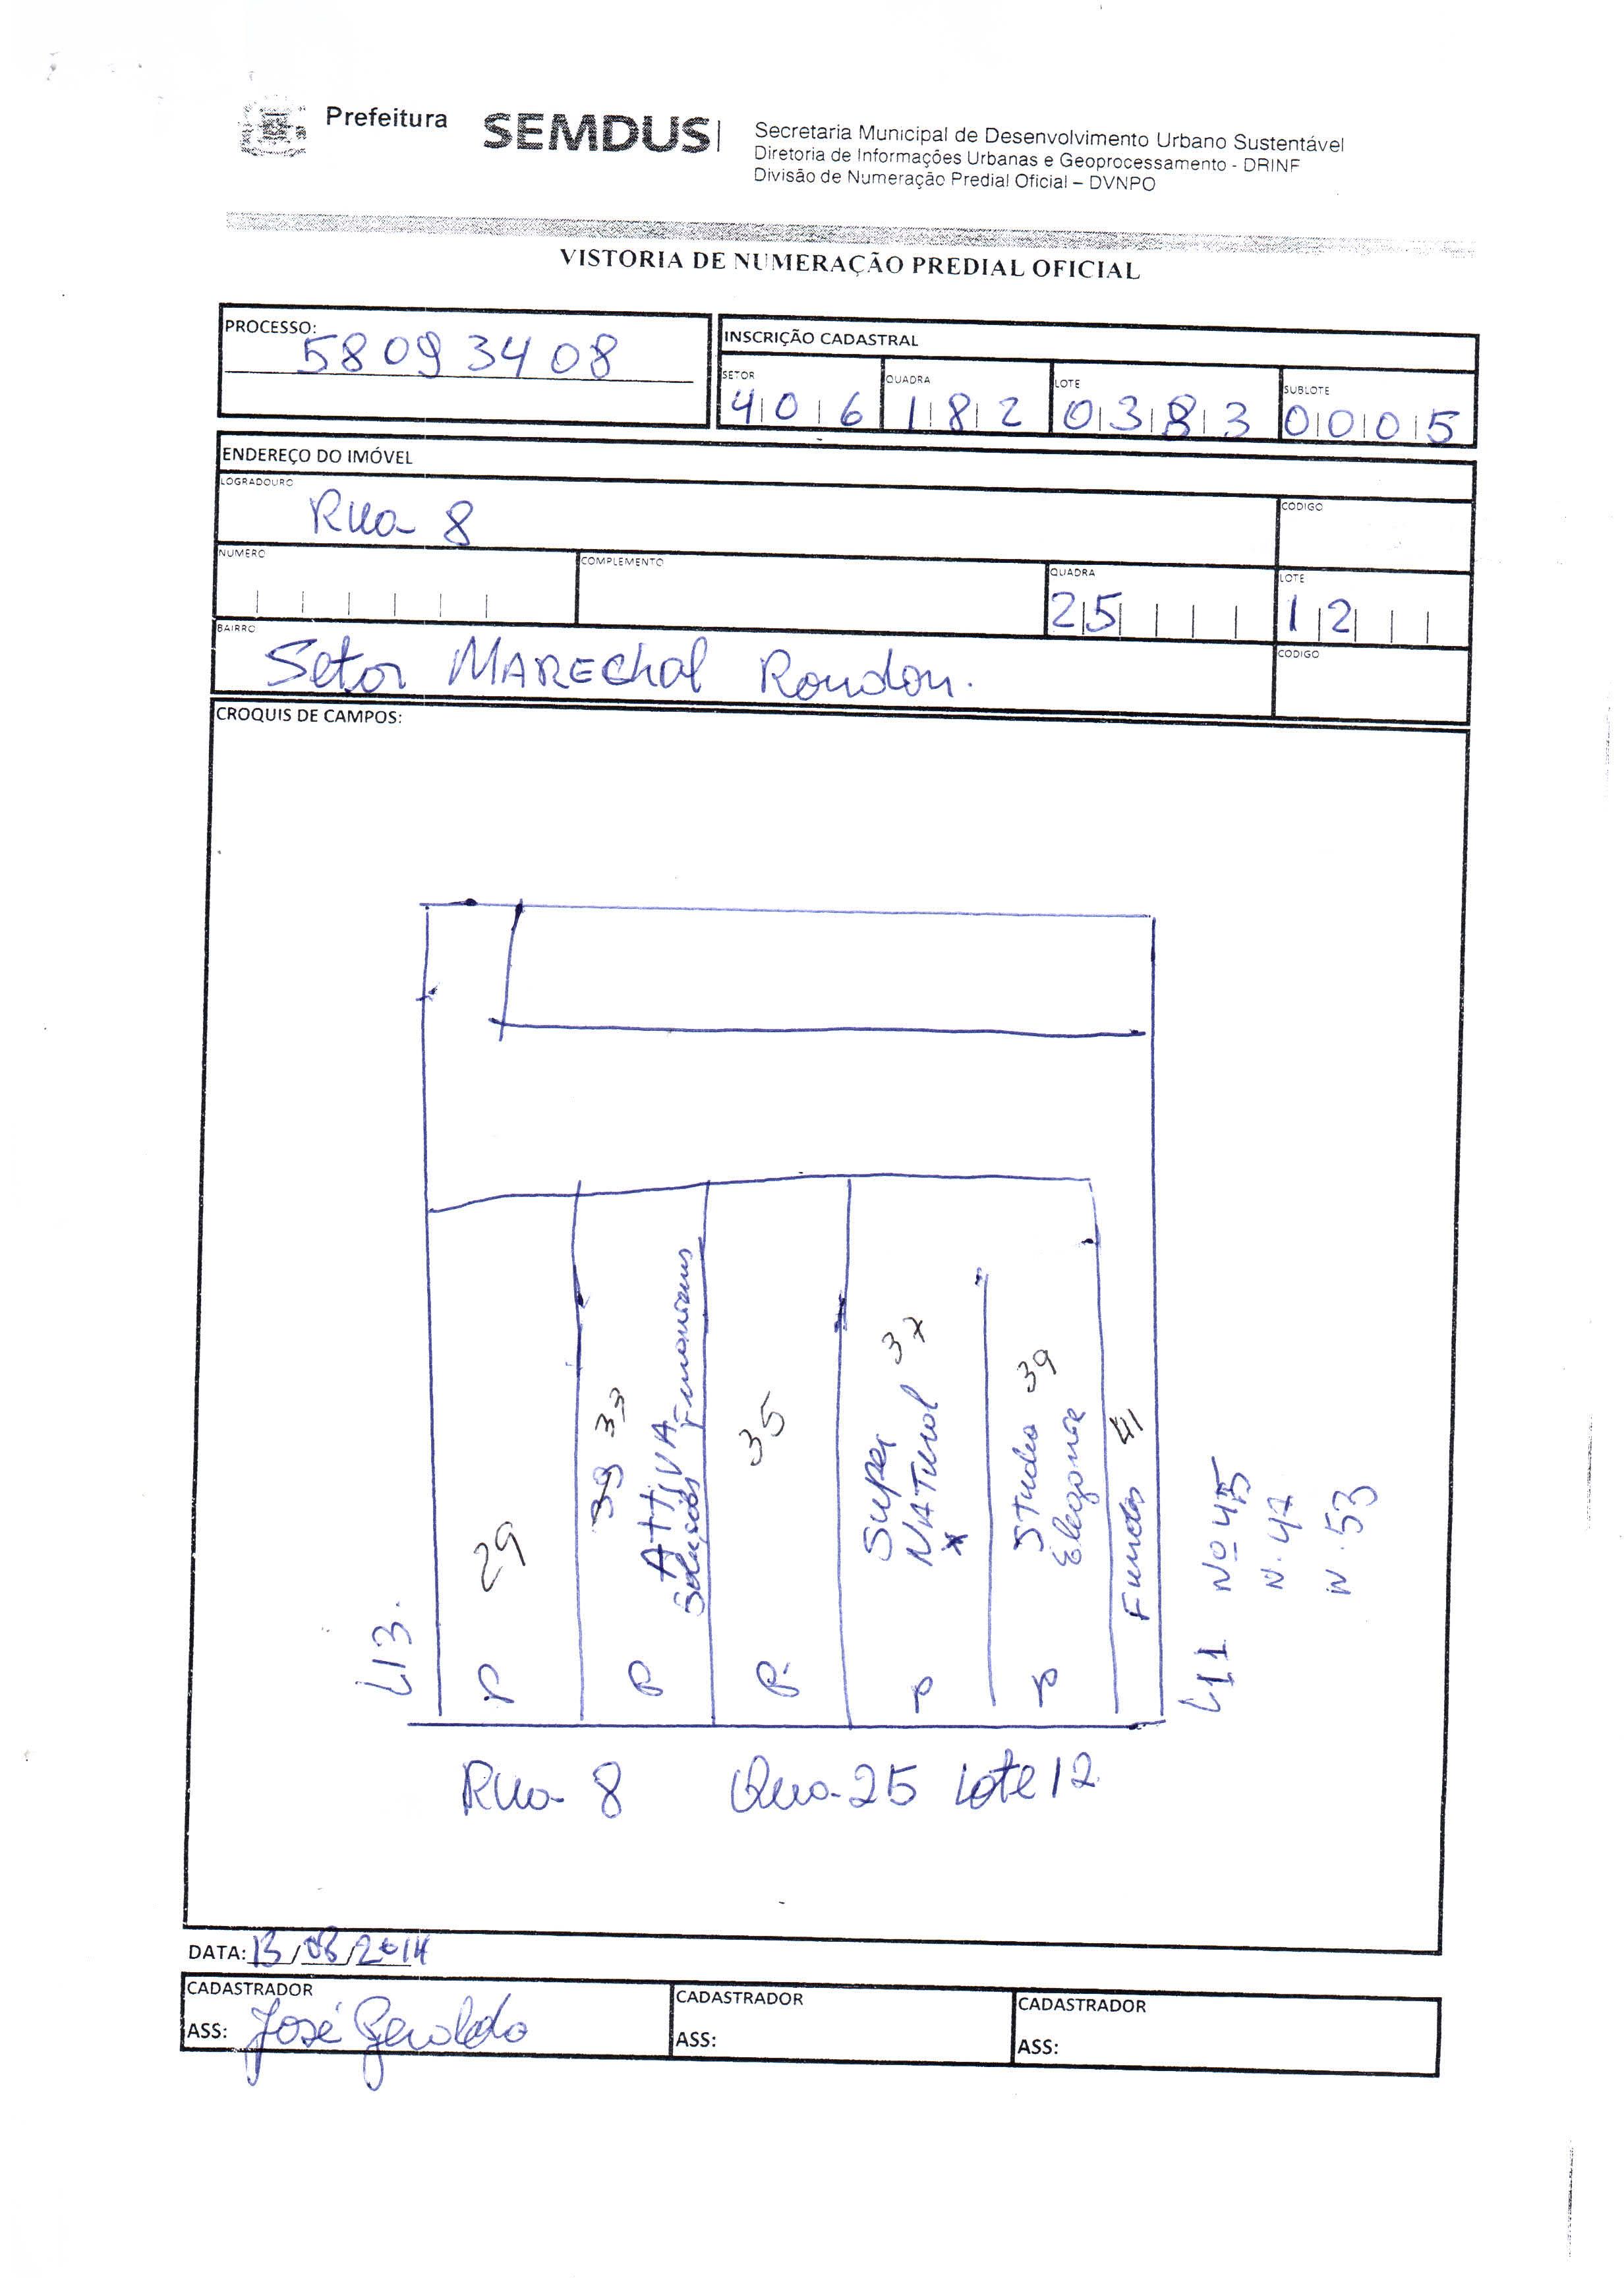 Prefeitura
SEMDUS
Secretaria Municipal de Desenvolvimento Urbano Sustentável
Diretoria de Informações Urbanas e Geoprocessamento - DRINF
Divisão de Numeração Predial Oficial – DVNPO
VISTORIA DE NUMERAÇÃO PREDIAL OFICIAL
PROCESSO:
58093408
INSCRIÇÃO CADASTRAL
SETOR
406
QUADRA
182
LOTE
0383
SUBLOTE
0005
ENDEREÇO DO IMÓVEL
LOGRADOURO
Rua 8
CODIGO
NUMERO
COMPLEMENTO
QUADRA
25
LOTE
12
BAIRRO
Setor MAREchal Rondon.
CODIGO
CROQUIS DE CAMPOS:
L13.
P 29
P 33
ATTIVA
Soluções
P. 35
P Super
NATurol 37
x
P Studio 39
Fundos 41
L11 Nº 45
N. 47
N. 53
Rua 8 Qua-25 Lote 12
DATA: 13/08/2014
CADASTRADOR
ASS: José Geraldo
CADASTRADOR
ASS:
CADASTRADOR
ASS: